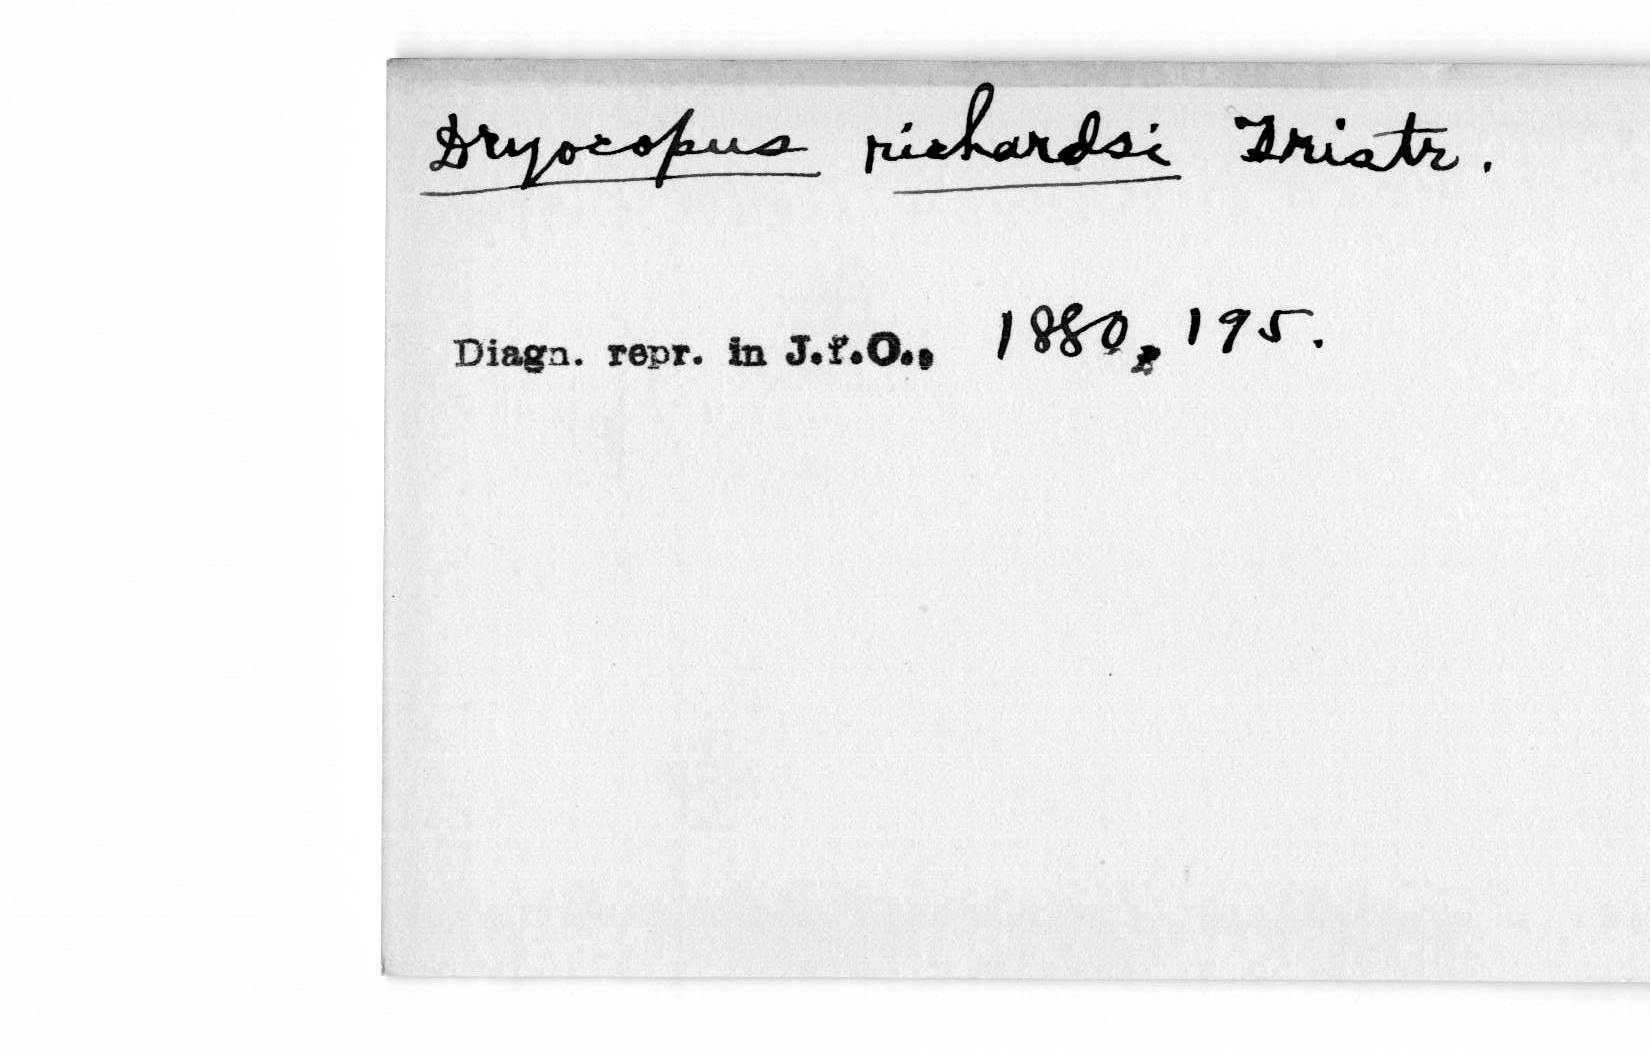 Dryocopus richardsi Tristr.
Diagn. repr. in J.f.O., 1880, 195.